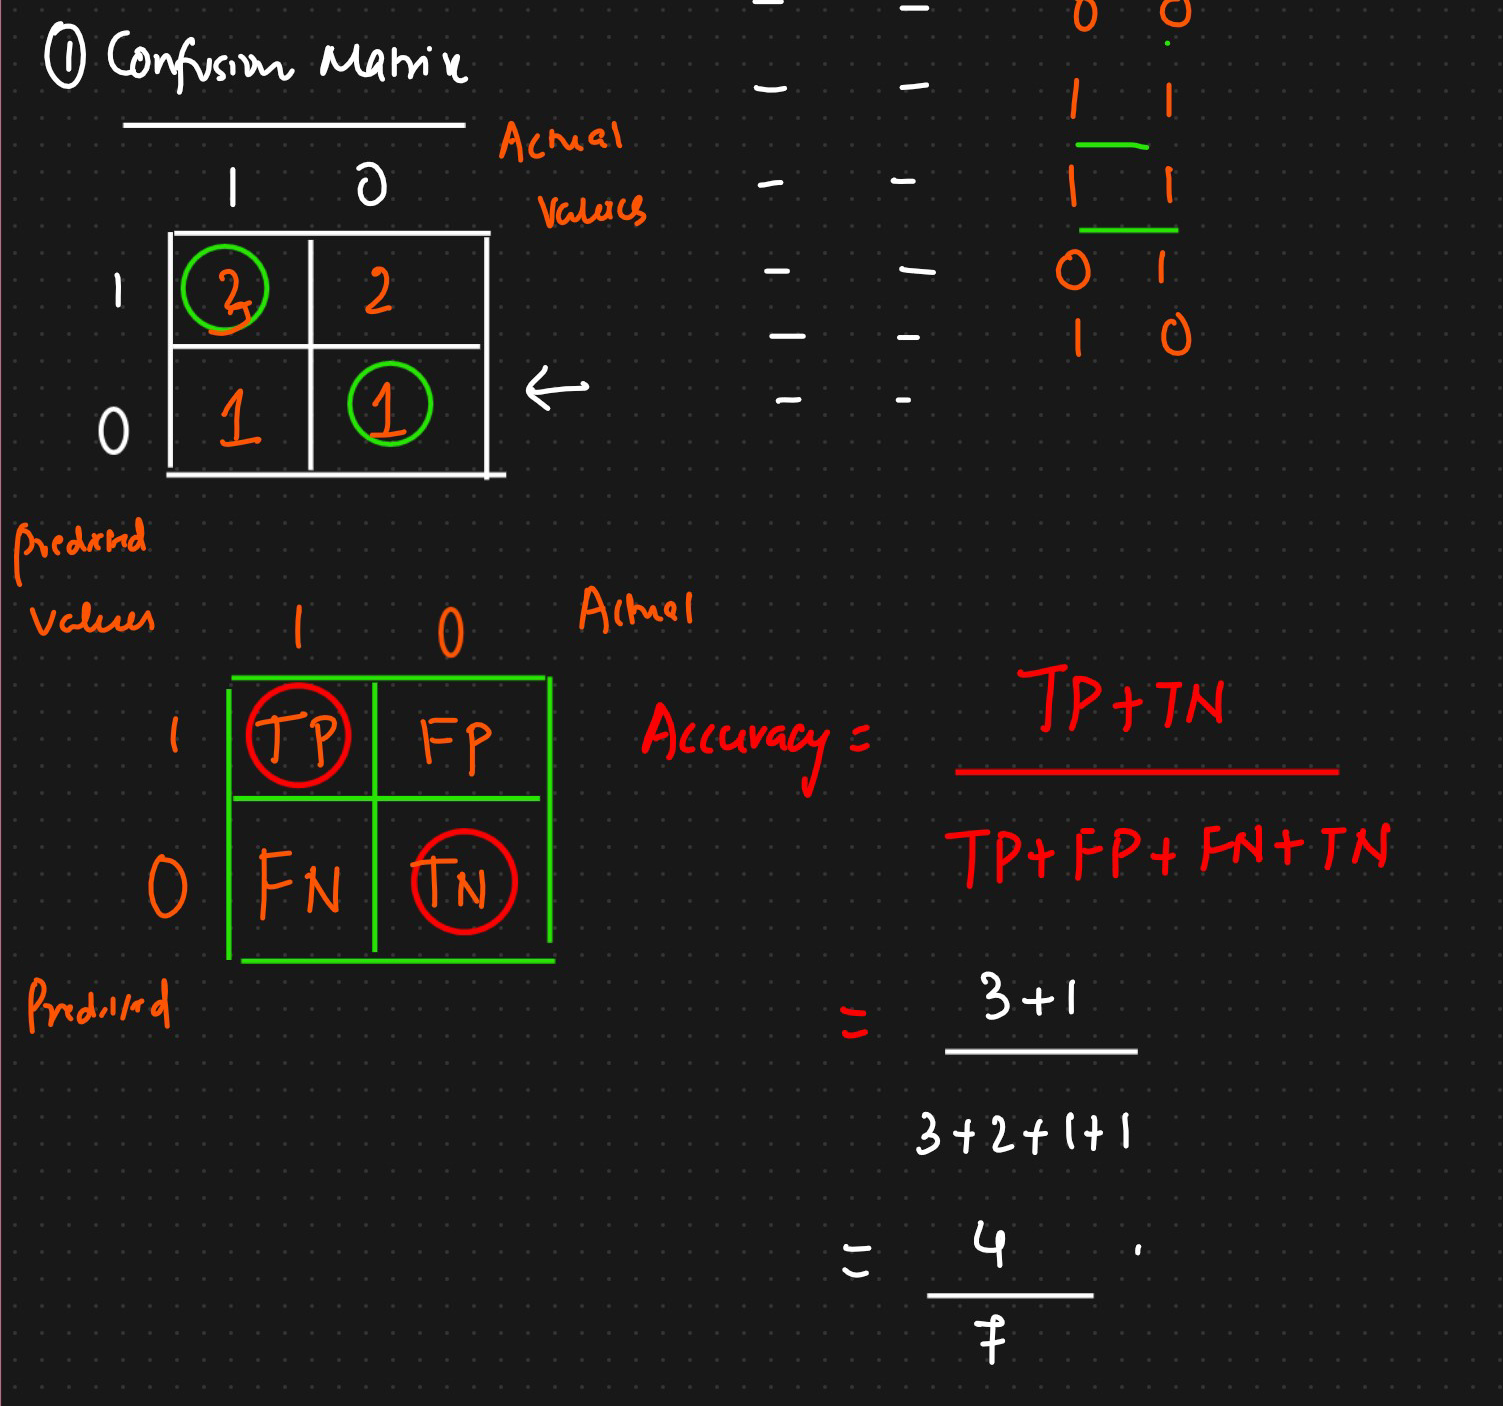 ① Confusion Matrix
Actual
Values
1 0
1 2 2
0 1 1
Predicted
Values
0 0
1 1
1 1
0 1
1 0
1 0 Actual
1 TP FP
0 FN TN
Predicted
Accuracy = TP+TN
TP+FP+FN+TN
= 3+1
3+2+1+1
= 4
7